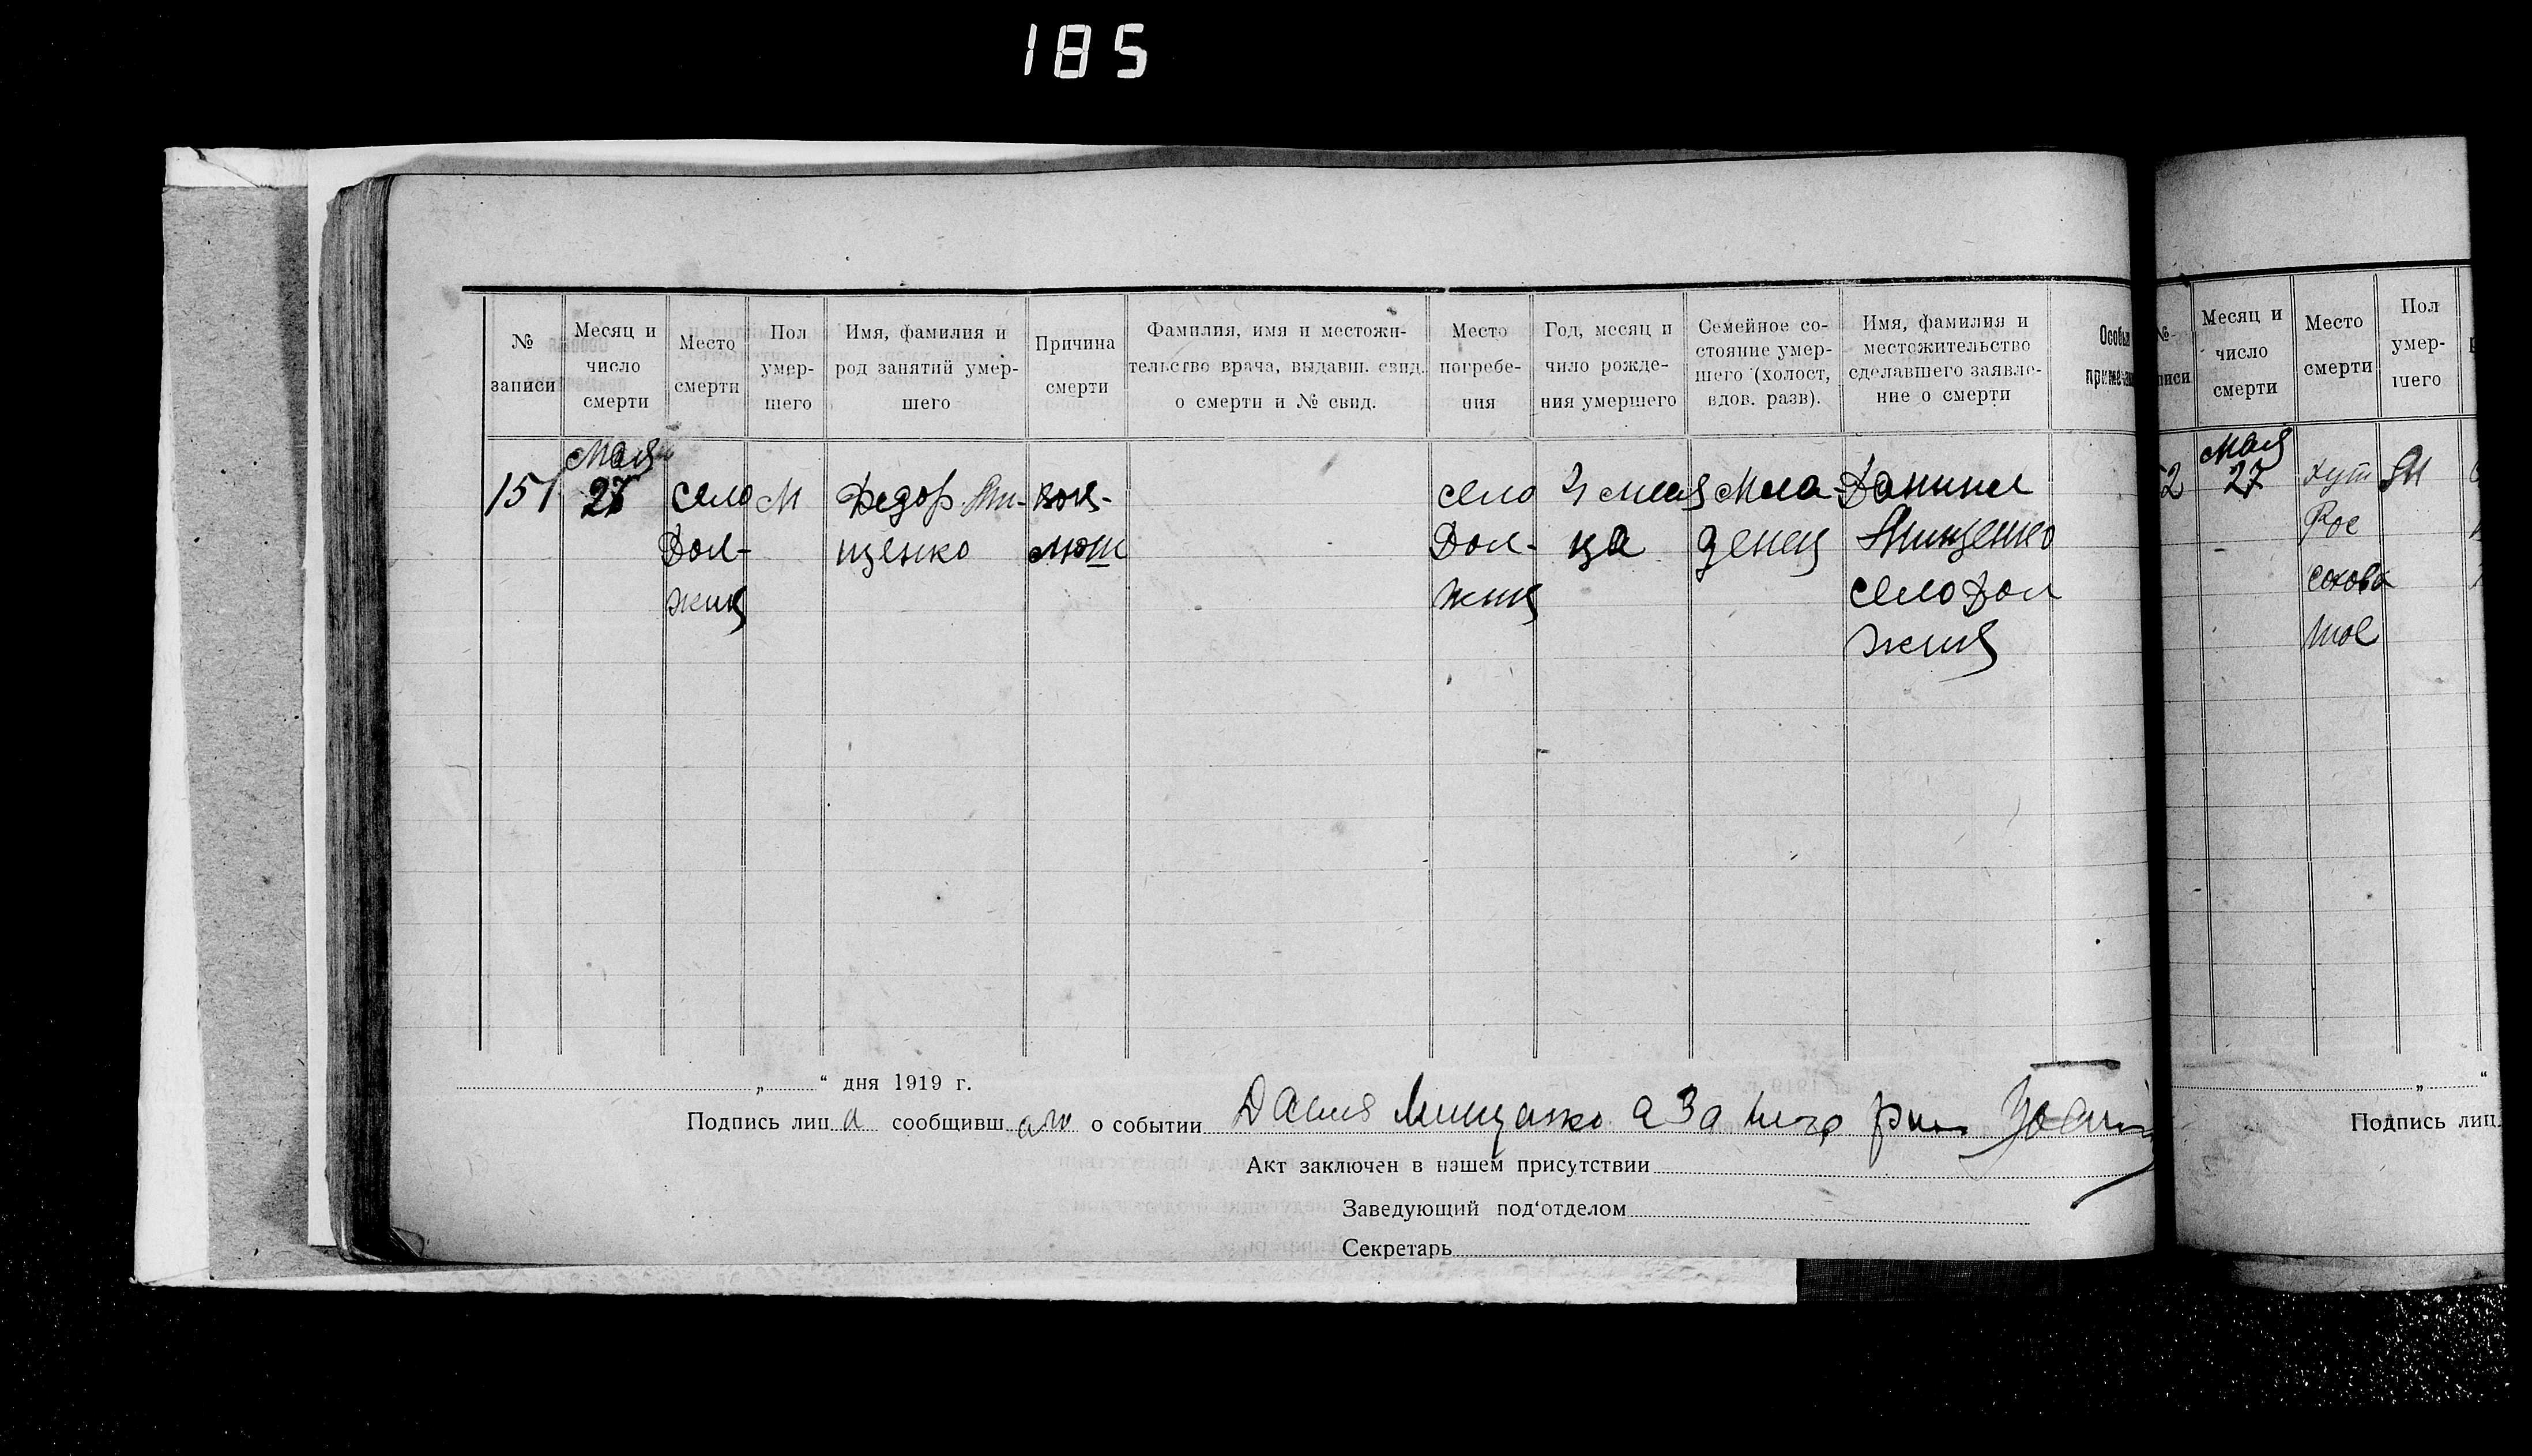 185
№ записи
Месяц и число смерти
Место смерти
Пол умер- шего
Имя, фамилия и род занятий умер- шего
Причина смерти
Фамилия, имя и местожи- тельство врача, выдавш. свид. о смерти и № свид.
Место погребе- ния
Год, месяц и чило рожде- ния умершего
Семейное со- стояние умер- шего (холост, вдов. разв).
Имя, фамилия и местожительство сделавшего заявле- ние о смерти
Особы примеча
151
Мая
27
село
Дол-
жик
М
Федор Ми-
щенко
кок-
люш
село
Дол-
жик
месяца
Мла-
денец
Данил
Мищенко
село Дол
жик
„ “ дня 1919 г.
Подпись лиц а сообщивш аго о событии Данил Мищенко а за него
Акт заключен в нашем присутствии
Заведующий под‘отделом
Секретарь
№ писи
Месяц и число смерти
Место смерти
Пол умер- шего
52
Мая
27
хут
Рос
сохова
тое
М
„ “
Подпись лиц